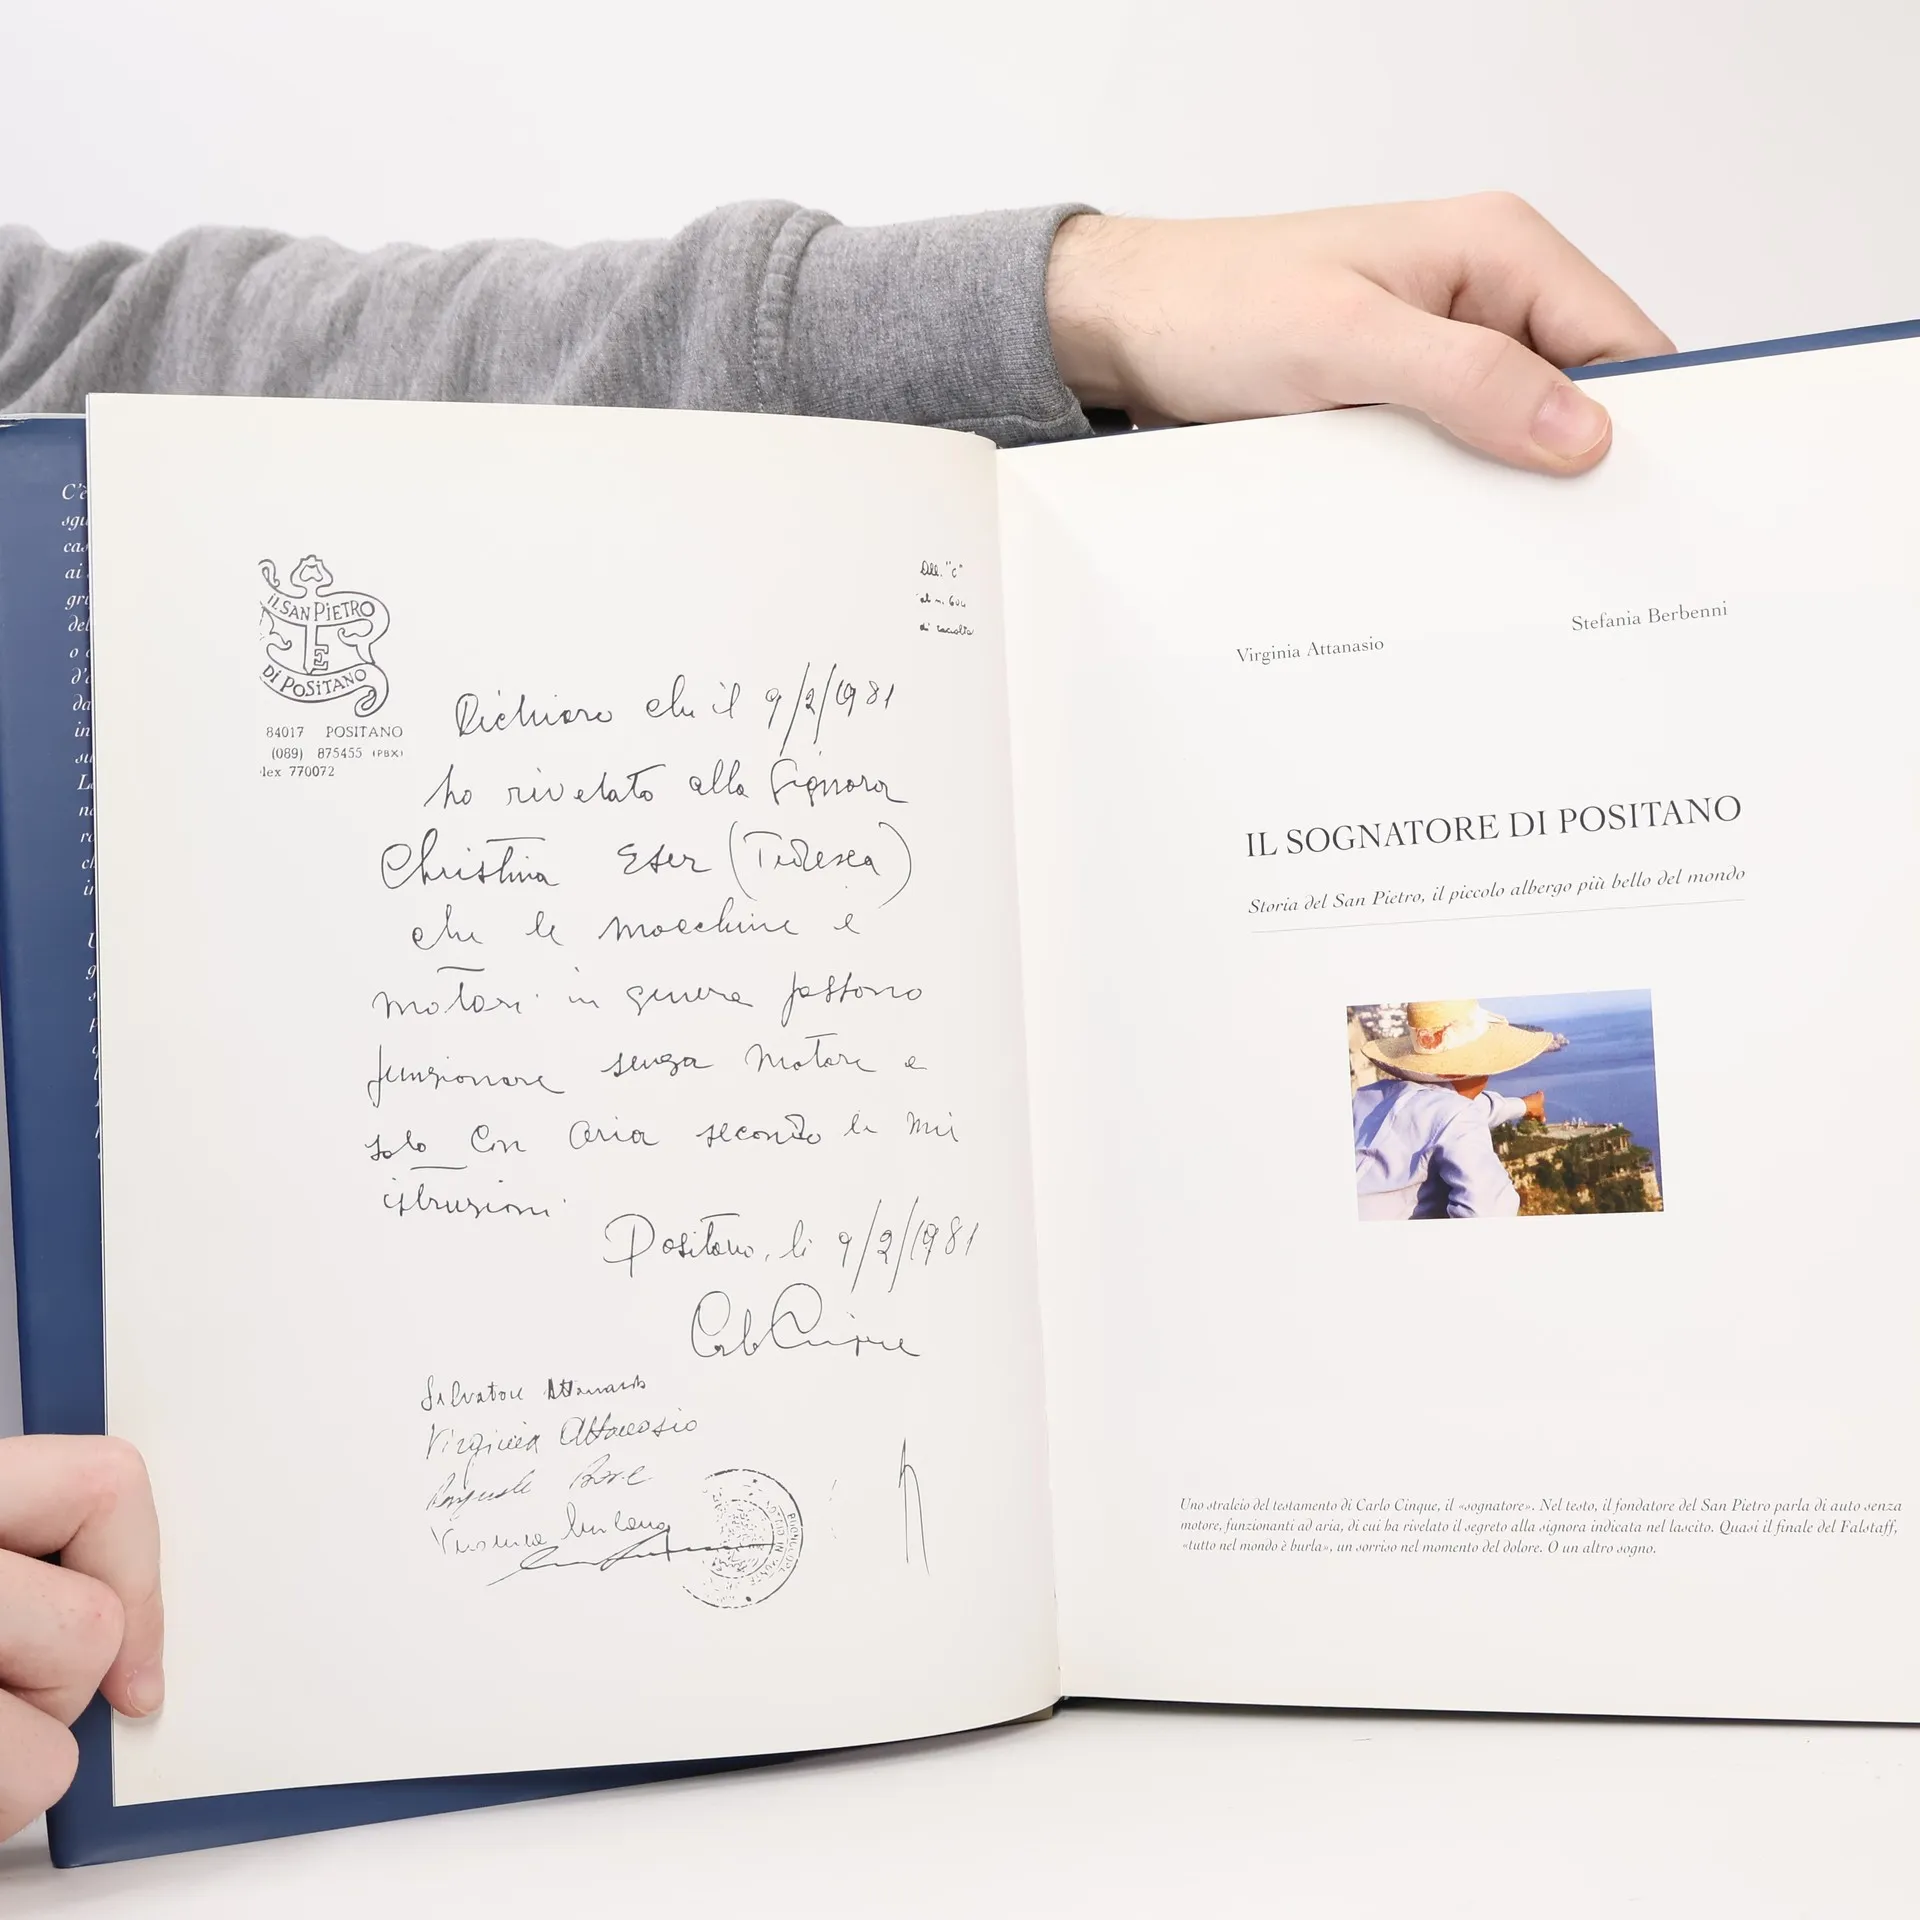 IL SAN PIETRO
DI POSITANO
84017 POSITANO
(089) 875455 (PBX)
lex 770072
All. "C"
di raccolta
Dichiaro che il 9/2/1981
ho rivelato alla Signora
Christina Eser (Tedesca)
che le macchine e
motori in genere possono
funzionare senza motore e
solo con aria secondo le mie
istruzioni.
Positano, li 9/2/1981
Carlo Cinque
Salvatore Attanasio
Virginia Attanasio
Pasquale
Virginia Attanasio Stefania Berbenni
IL SOGNATORE DI POSITANO
Storia del San Pietro, il piccolo albergo più bello del mondo
Uno stralcio del testamento di Carlo Cinque, il «sognatore». Nel testo, il fondatore del San Pietro parla di auto senza
motore, funzionanti ad aria, di cui ha rivelato il segreto alla signora indicata nel lascito. Quasi il finale del Falstaff,
«tutto nel mondo è burla», un sorriso nel momento del dolore. O un altro sogno.